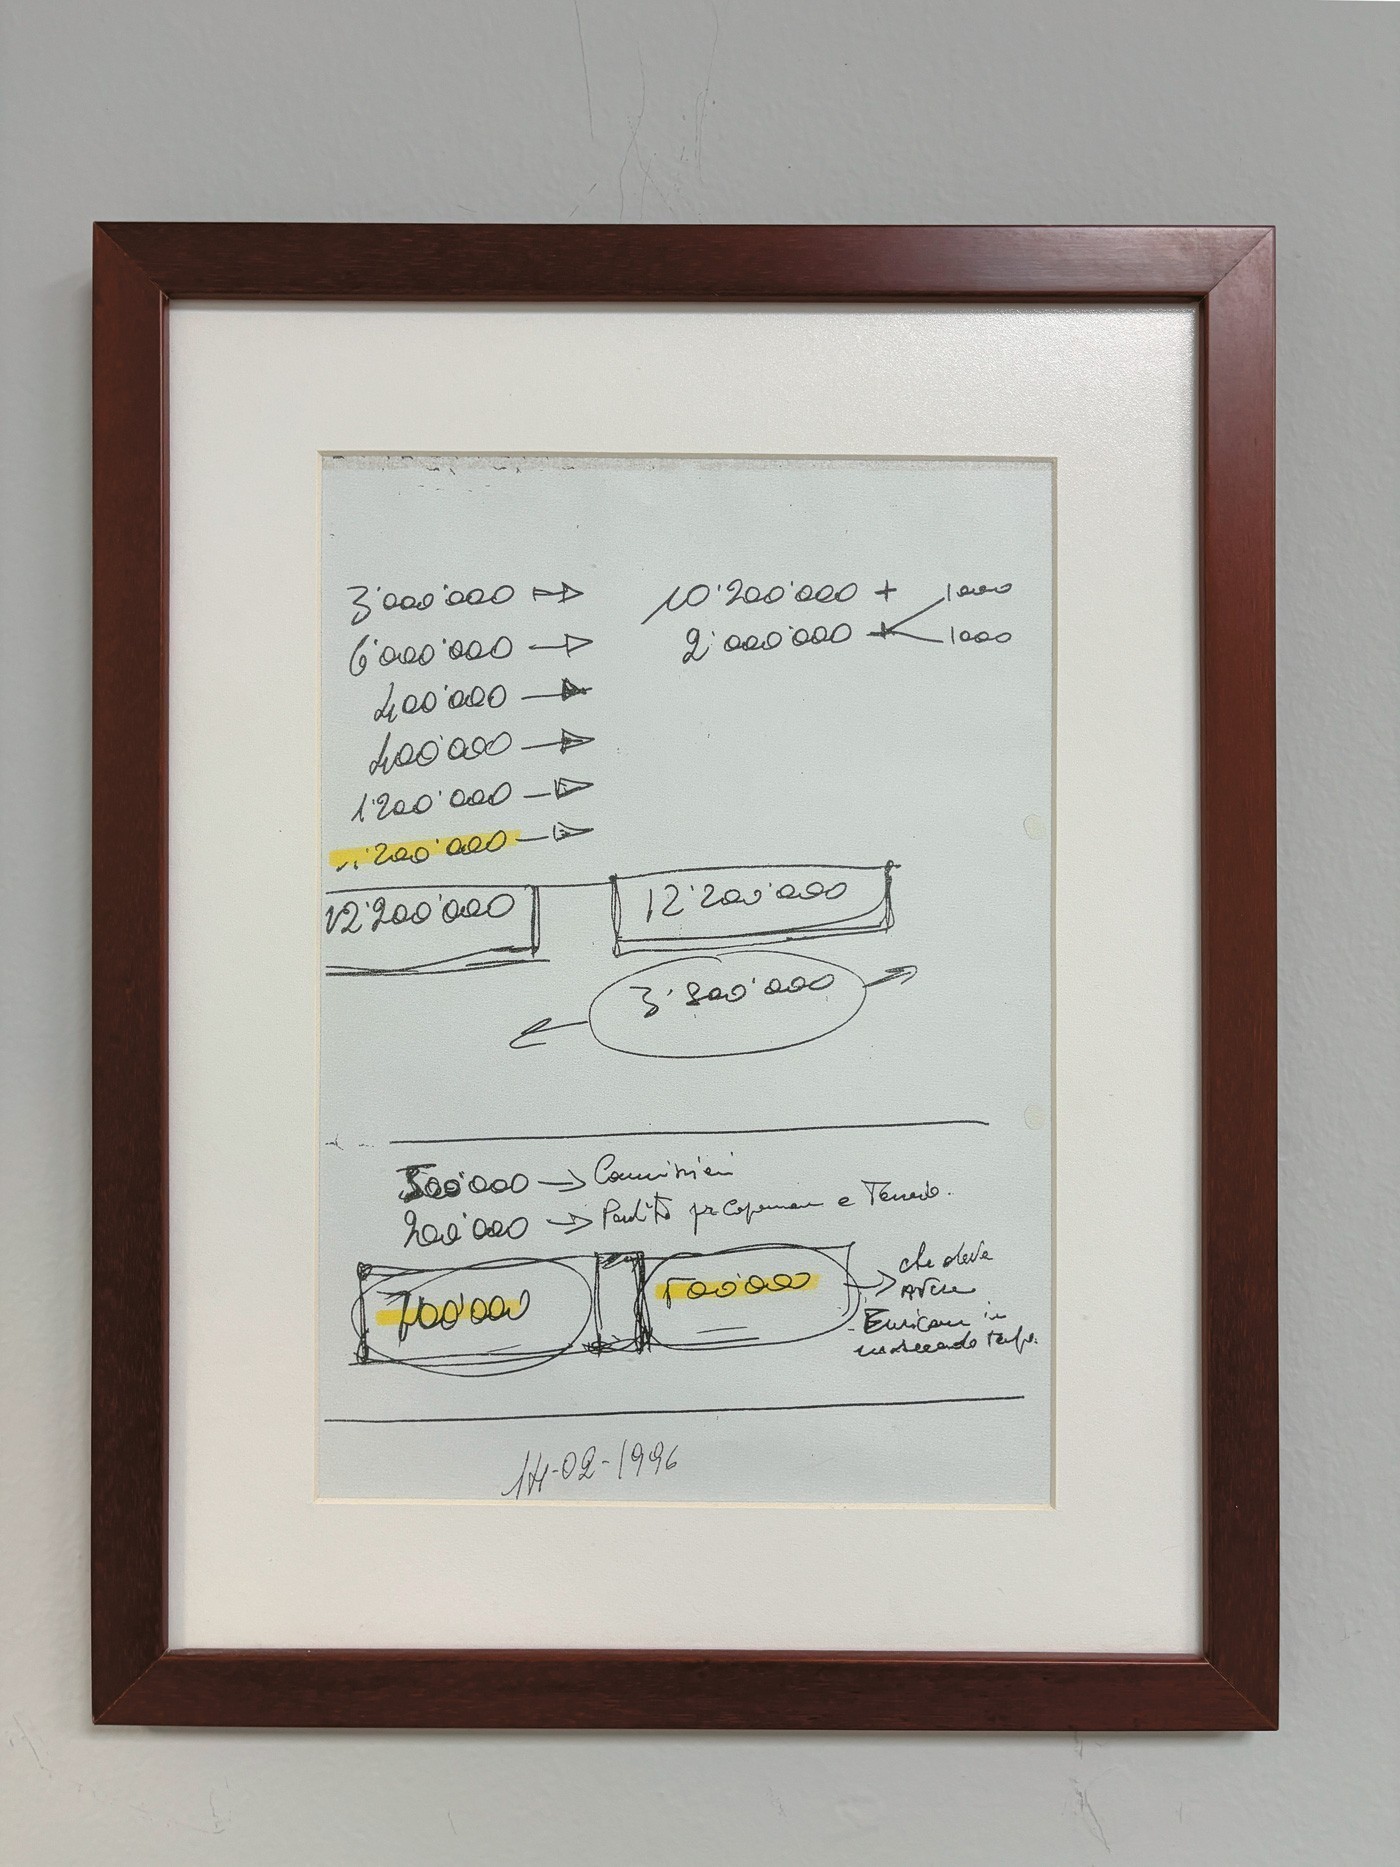 3'000'000
6'000'000
400'000
400'000
1'200'000
1'200'000
12'200'000
10'200'000 + 1000
2'000'000 + 1000
12'200'000
3'800'000
500'000 → Commissioni
200'000 → e
700'000
500'000 → che deve
avere
Enrican in
un secondo tempo.
14-02-1996